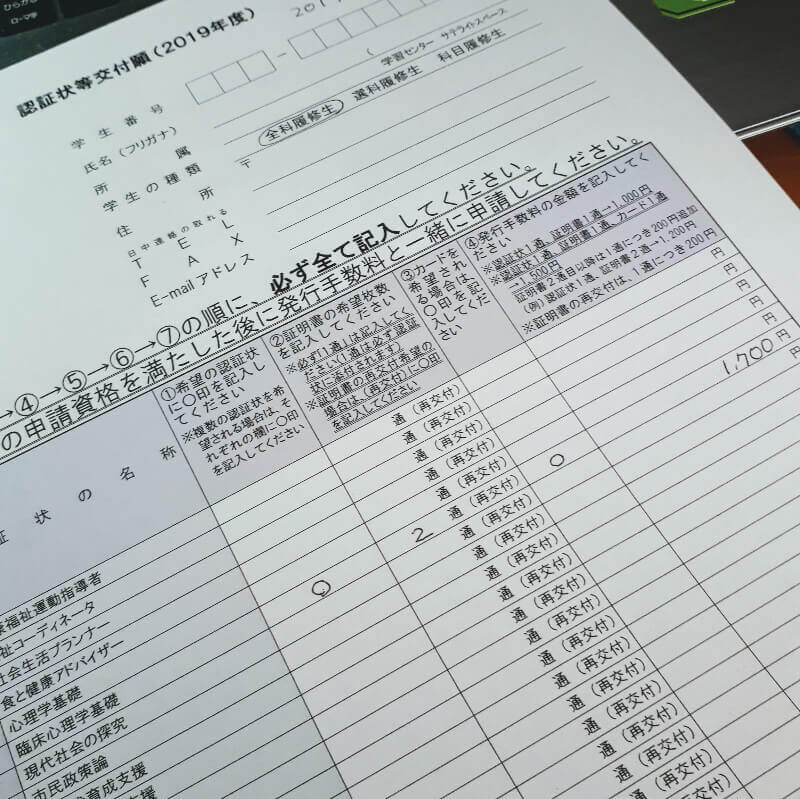 ひらがな
ローマ字
認証状等交付願(2019年度)
学生番号 －
氏名(フリガナ)
所属 ( 学習センター サテライトスペース
学生の種類 全科履修生 選科履修生 科目履修生
住所 〒
日中連絡の取れる
TEL
FAX
E-mailアドレス
→④→⑤→⑥→⑦の順に、必ず全て記入してください。
の申請資格を満たした後に発行手数料と一緒に申請してください。
証状の名称
①希望の認証状
に〇印を記入し
てください
※複数の認証状を希
望される場合は、そ
れぞれの欄に〇印
を記入してください
②証明書の希望枚数
を記入してください
※必ず「1通」は記入してく
ださい(1通は必ず認証
状に添付されます)
※証明書の再交付希望の
場合は、(再交付)に〇印
を記入してください
③カードを
希望され
る場合は、
〇印を記
入してくだ
さい
④発行手数料の金額を記入してく
ださい
※認証状1通、証明書1通→1,000円
※認証状1通、証明書1通、カード1通
→1,500円
証明書2通目以降は1通につき200円追加
(例)認証状1通、証明書2通→1,200円
※証明書の再交付は、1通につき200円
通(再交付) 円
通(再交付) 円
通(再交付) 円
通(再交付) 円
通(再交付)
〇 2 通(再交付) 〇 1,700 円
通(再交付)
通(再交付)
通(再交付)
通(再交付)
通(再交付)
通(再交付)
通(再交付)
通(再交付)
通(再交付)
通(再交付)
福祉運動指導者
祉コーディネータ
社会生活プランナー
食と健康アドバイザー
心理学基礎
臨床心理学基礎
現代社会の探究
市民政策論
育成支援